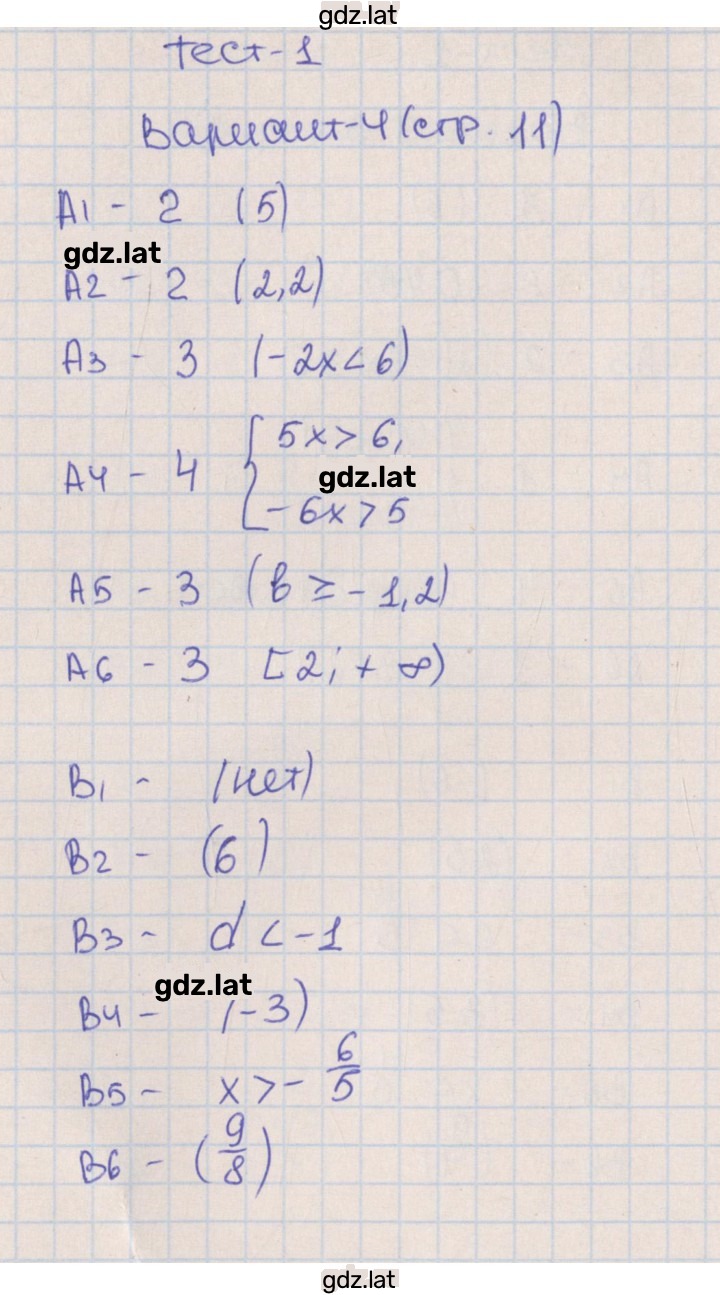 gdz.lat
тест-1
Вариант-4 (стр. 11)
А1 - 2 (5)
gdz.lat
А2 - 2 (2,2)
А3 - 3 (-2x < 6)
А4 - 4 { 5x > 6,
gdz.lat
-6x > 5
А5 - 3 (в ≥ -1,2)
А6 - 3 [2; + ∞)
В1 - (нет)
В2 - (6)
В3 - d < -1
gdz.lat
В4 - (-3)
В5 - x > - 6/5
В6 - (9/8)
gdz.lat